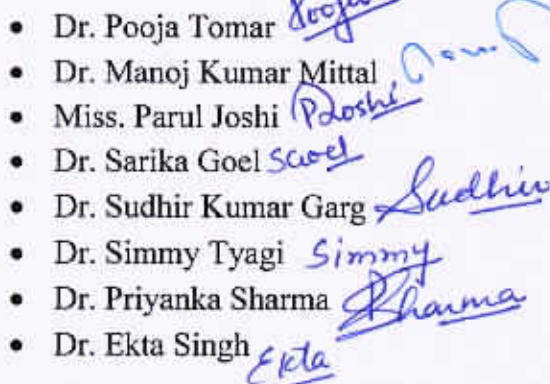 • Dr. Pooja Tomar Pooja
• Dr. Manoj Kumar Mittal
• Miss. Parul Joshi PJoshi
• Dr. Sarika Goel SGoel
• Dr. Sudhir Kumar Garg Sudhir
• Dr. Simmy Tyagi Simmy
• Dr. Priyanka Sharma PSharma
• Dr. Ekta Singh Ekta